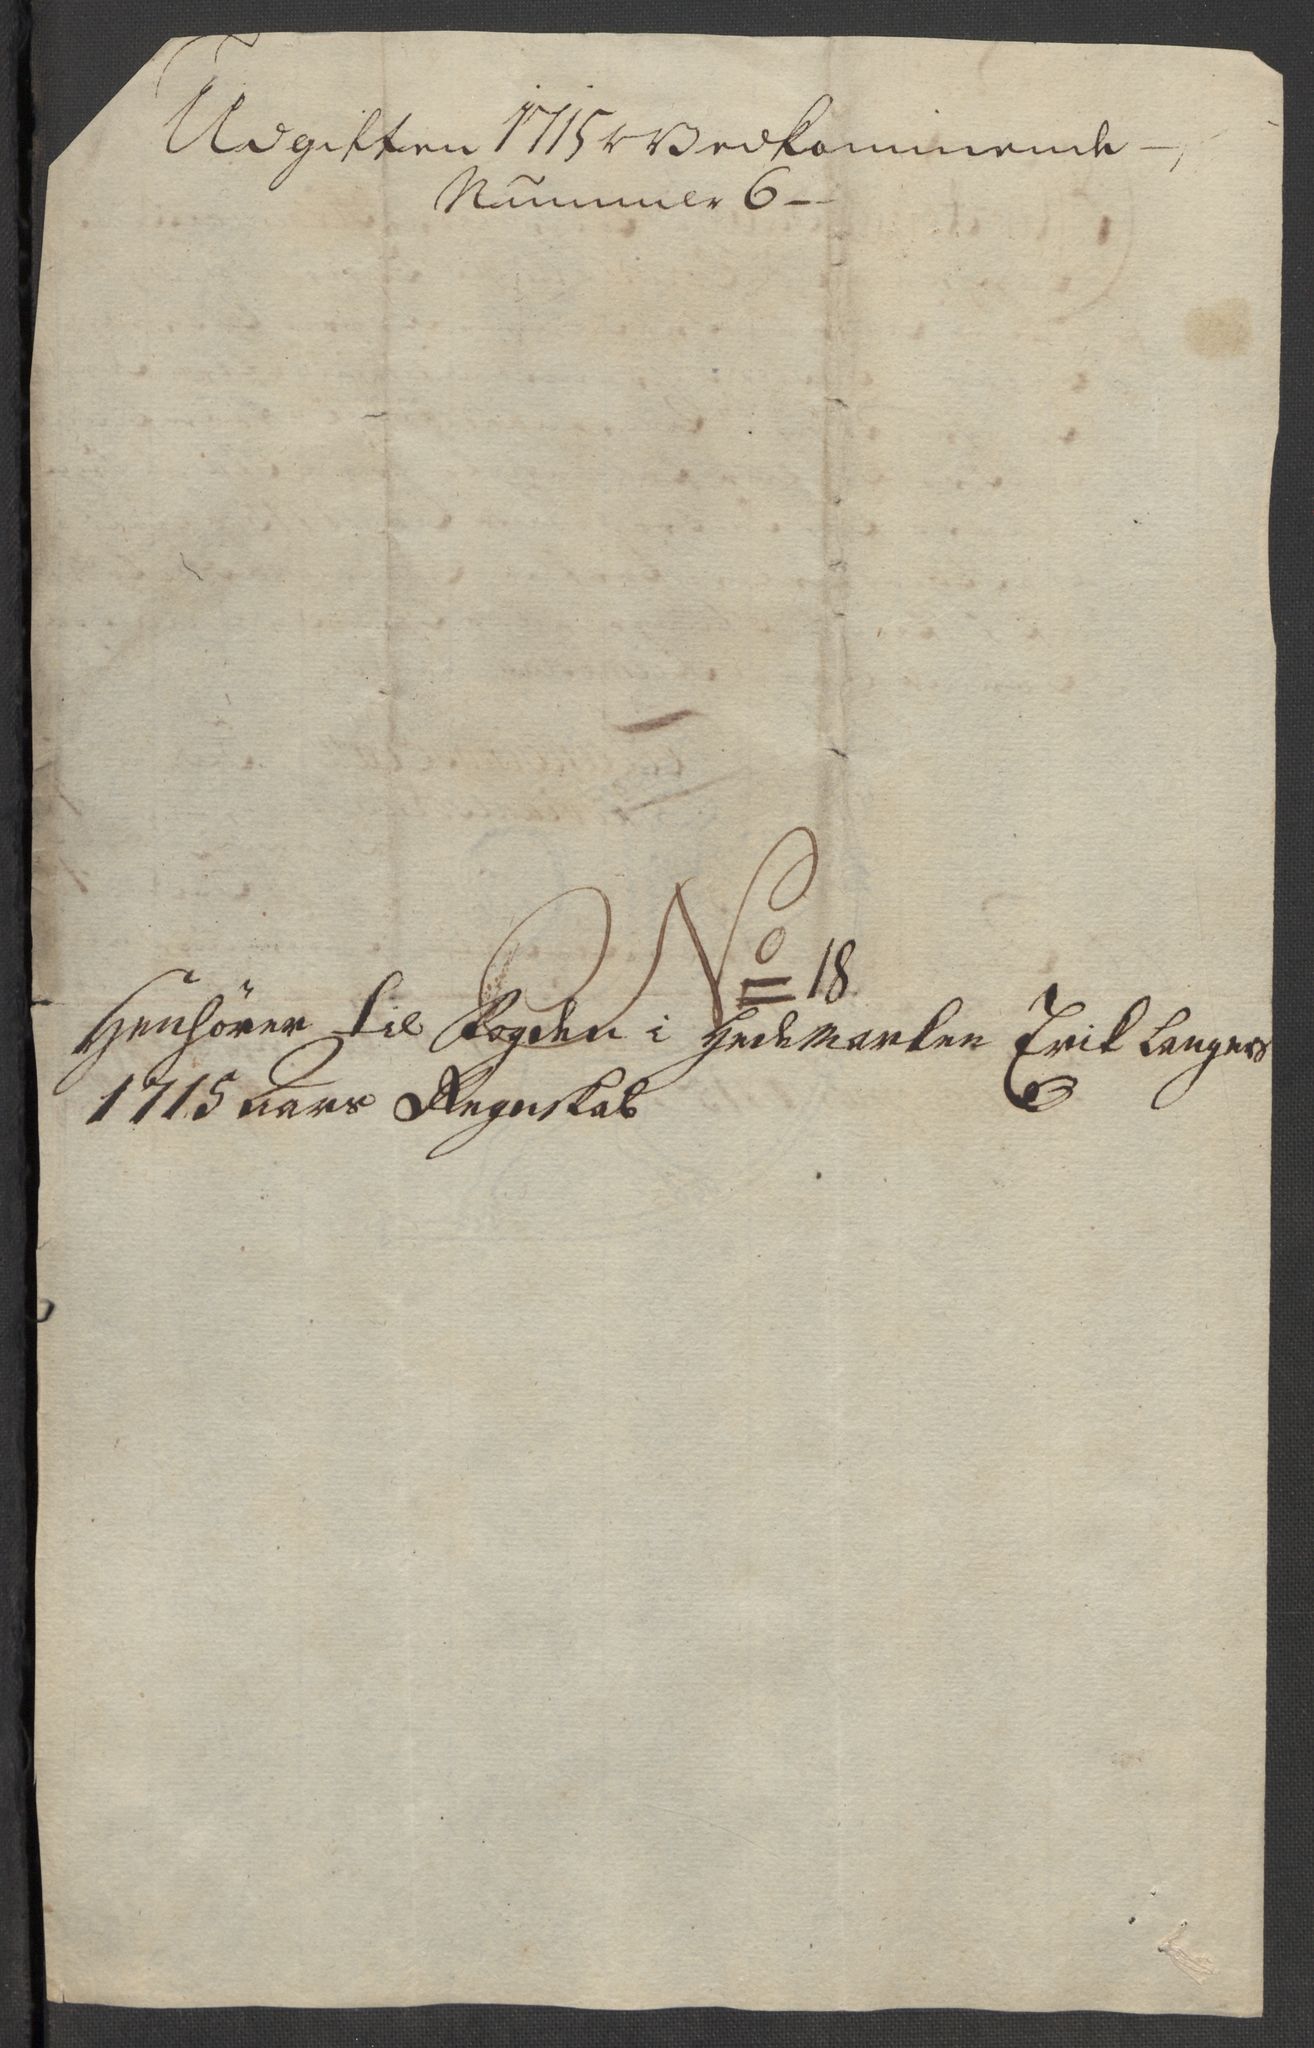 Udgiften 1715 Vedkommende
Nummer 6
No 18
Henhörer til Fogden i Hedemarken Erik Langers
1715 aars Regnskab